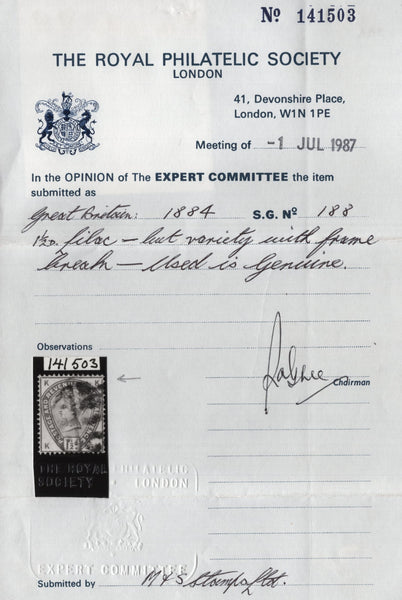 Nº 141503
THE ROYAL PHILATELIC SOCIETY
LONDON
41, Devonshire Place,
London, W1N 1PE
Meeting of -1 JUL 1987
In the OPINION of The EXPERT COMMITTEE the item
submitted as
Great Britain: 1884 S.G. Nº 188
1½D. lilac – but variety with frame
break – Used is Genuine.
Observations
Chairman
141503
K K
POSTAGE AND REVENUE
K K
THE ROYAL PHILATELIC
SOCIETY LONDON
EXPERT COMMITTEE
Submitted by M & S Stamps Ltd.